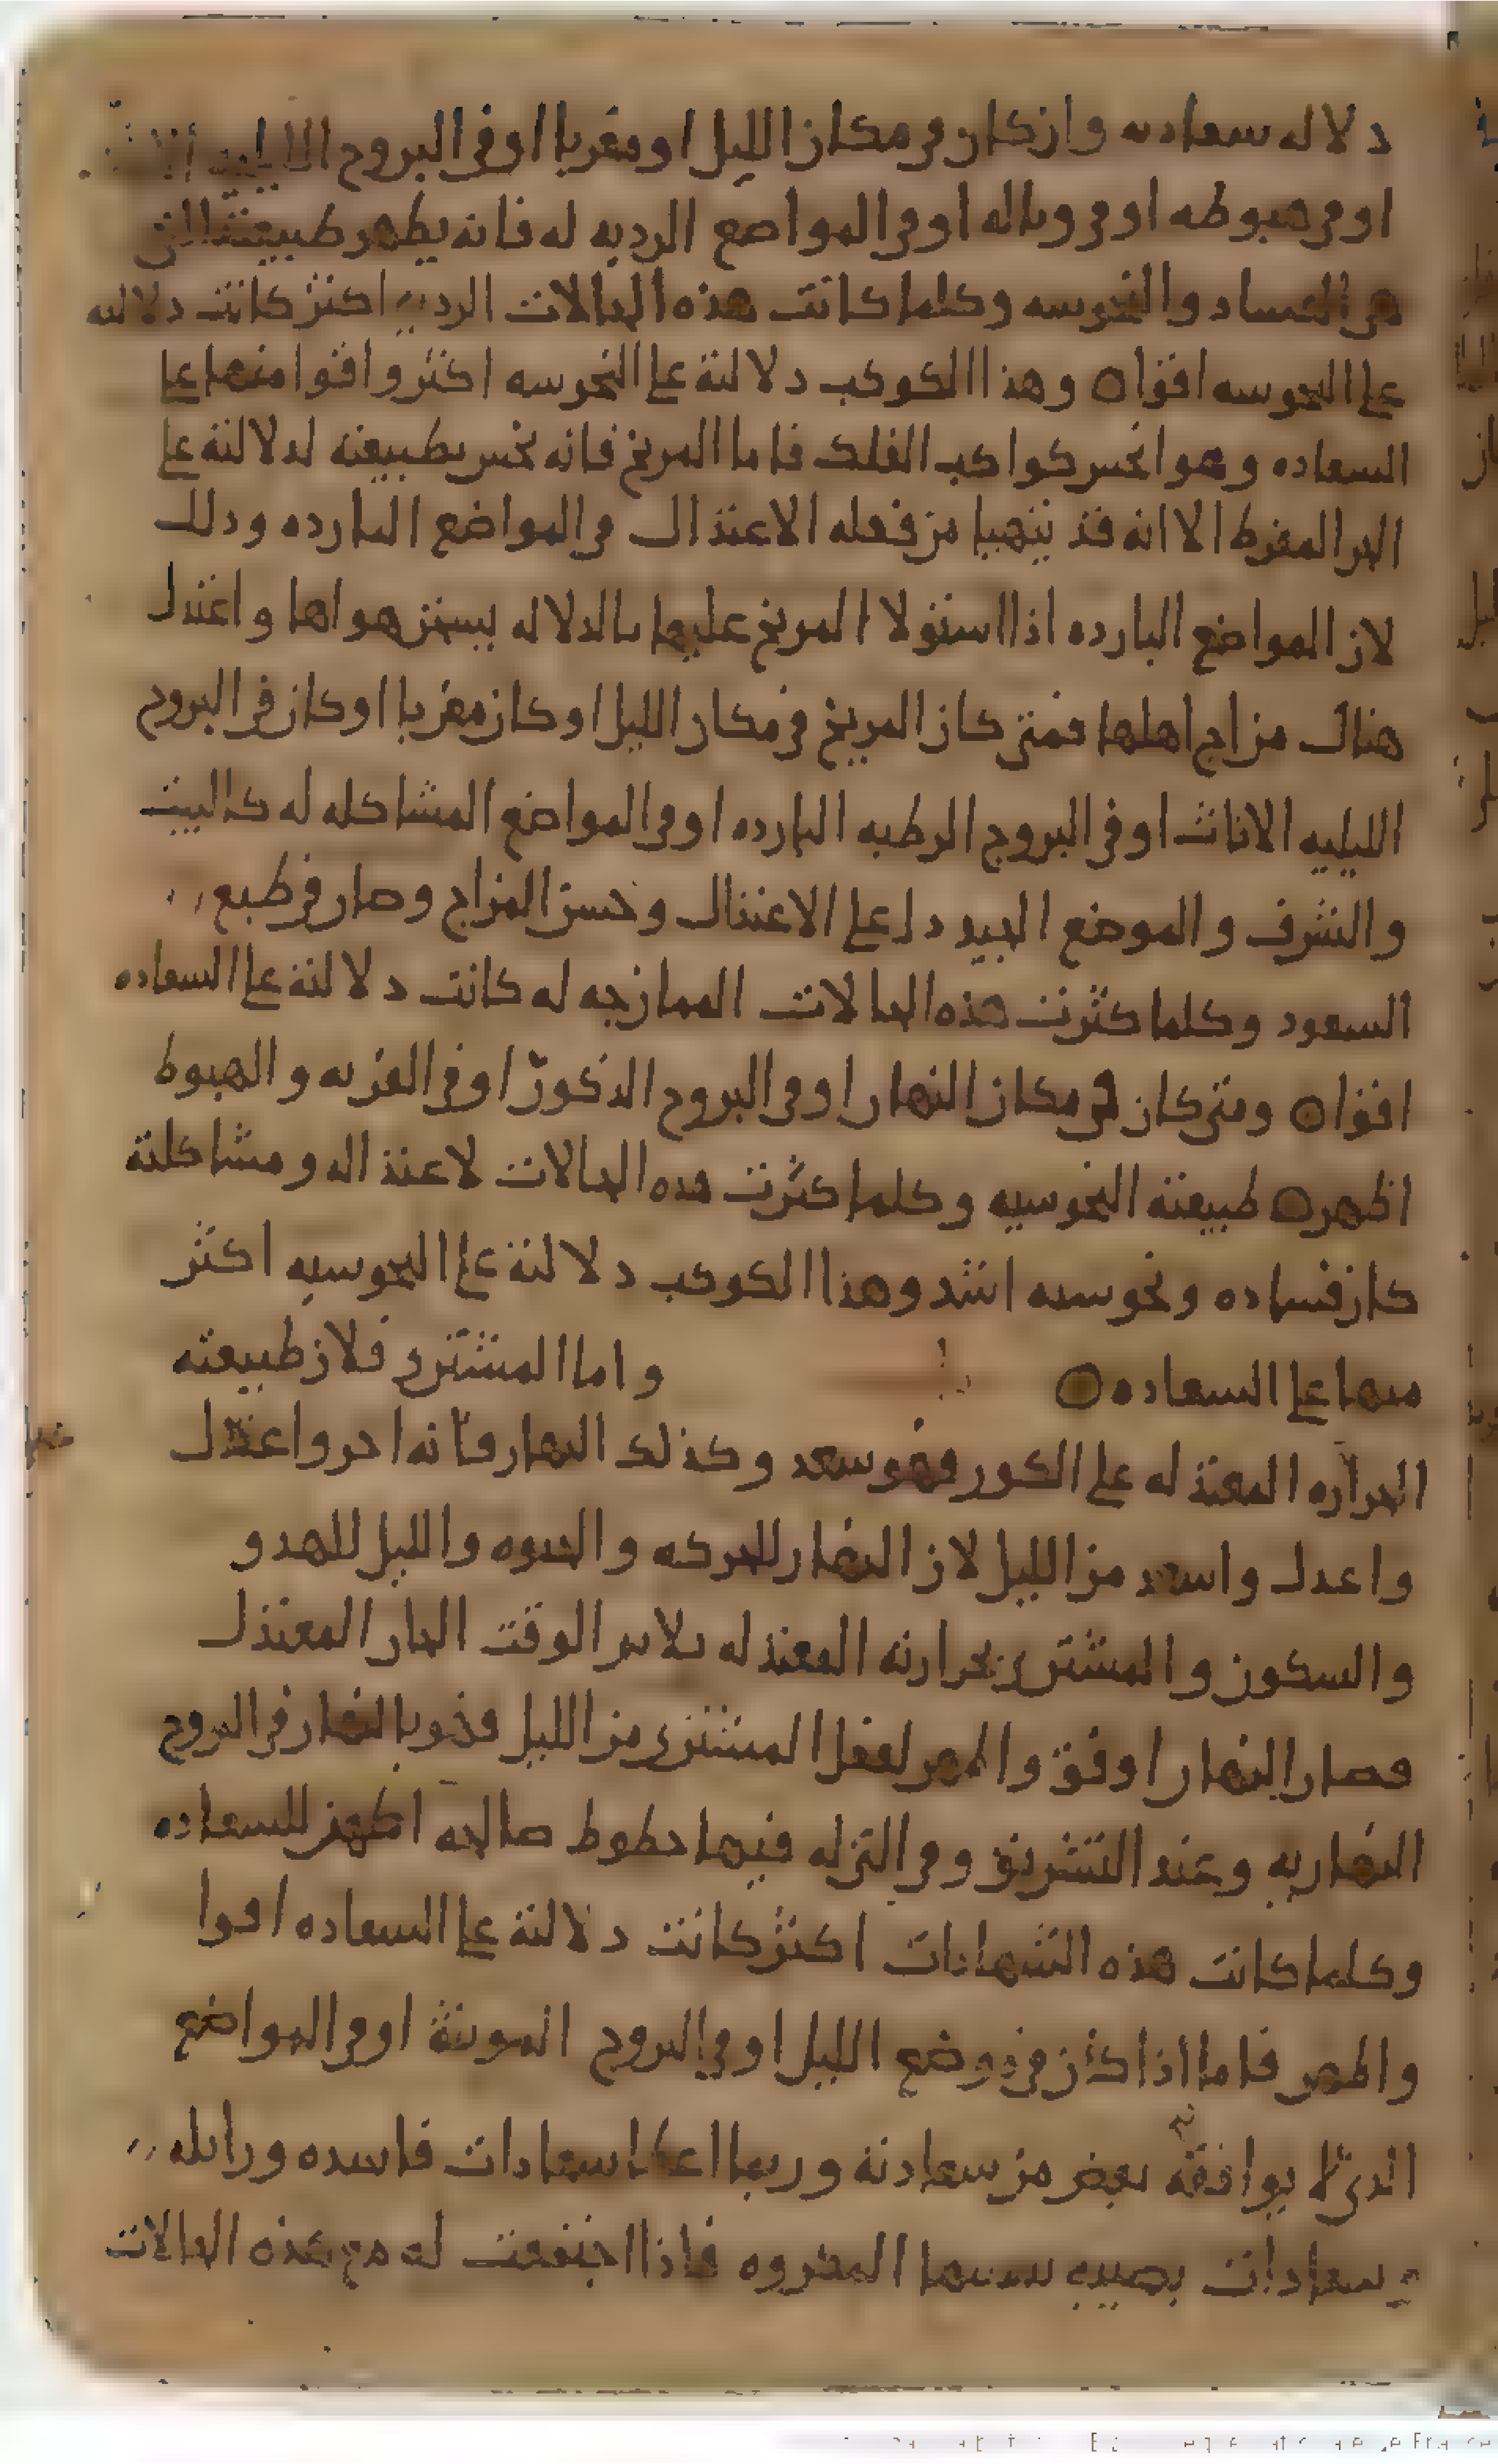 دلاله سعادته وان كان في مكان الليل او مغربا او في البروج الليليه
او في هبوطه او في وباله او في المواضع الرديه له فانه يظهر طبيعته
من الفساد والنحوسه وكلما كانت هذه الحالات الرديه اكثر كانت دلالته
على النحوسه اقوا ه وهذا الكوكب دلالته على النحوسه اكثر واقوا منها على
السعاده وهو انحس كواكب الفلك فاما المريخ فانه نحس بطبيعته لدلالته على
الحر المفرط الا انه قد يتهيا من فعله الاعتدال في المواضع البارده وذلك
لان المواضع البارده اذا استولا المريخ عليها بالدلاله يسخن هواها واعتدل
هناك مزاج اهلها فمتى كان المريخ في مكان الليل او كان مغربا او كان في البروج
الليليه الاناث او في البروج الرطبه البارده او في المواضع المشاكله له كالبيت
والشرف والموضع الجيد دل على الاعتدال وحسن المزاج وصار في طبع
السعود وكلما كثرت هذه الحالات الممازجه له كانت دلالته على السعاده
اقوا ه ومتى كان في مكان النهار او في البروج الذكور او في الغربه والهبوط
اظهر ه طبيعته النحوسيه وكلما كثرت هذه الحالات لاعتداله ومشاكلته
كان فساده ونحوسه اشد وهذا الكوكب دلالته على النحوسيه اكثر
منها على السعاده ه واما المشتري فلان طبيعته
الحراره المعتدله على الكور فهو سعد وكذلك النهار فانه احر واعتدل
واعدل واسعد من الليل لان النهار للحركه والحيوه والليل للهدو
والسكون والمشتري بحرارته المعتدله يلايم الوقت الحار المعتدل
فصار النهار اوفق واظهر لفعل المشتري من الليل فهو بالنهار في البروج
النهاريه وعند التشريق وفي التي له فيها حظوظ صالحه اظهر للسعاده
وكلما كانت هذه الشهادات اكثر كانت دلالته على السعاده اقوا
واظهر فاما اذا كان في موضع الليل او في البروج المونثة او في المواضع
الذي لا يوافقه بعض من سعادته وربما اعطا سعادات فاسده وزائله
سعادات يصيبه بسببها المكروه فاذا اجتمعت له مع هذه الحالات